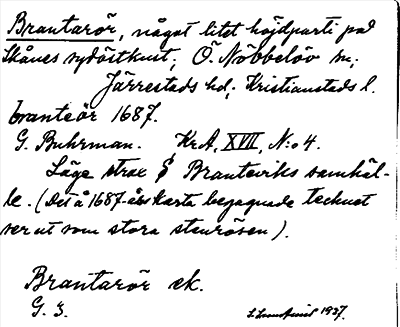 Brantarör, något litet höjdparti på
Skånes sydöstkust; Ö. Nöbbelöv sn;
Järrestads hd; Kristianstads l.
branteör 1687.
G. Buhrman. KrA, XVII, N:o 4.
Läge strax S Branteviks samhäl-
le. (Det å 1687-årskarta begagnade tecknet
ser ut som stora stenrösen).
Brantarör ek.
G. 3.
1937.